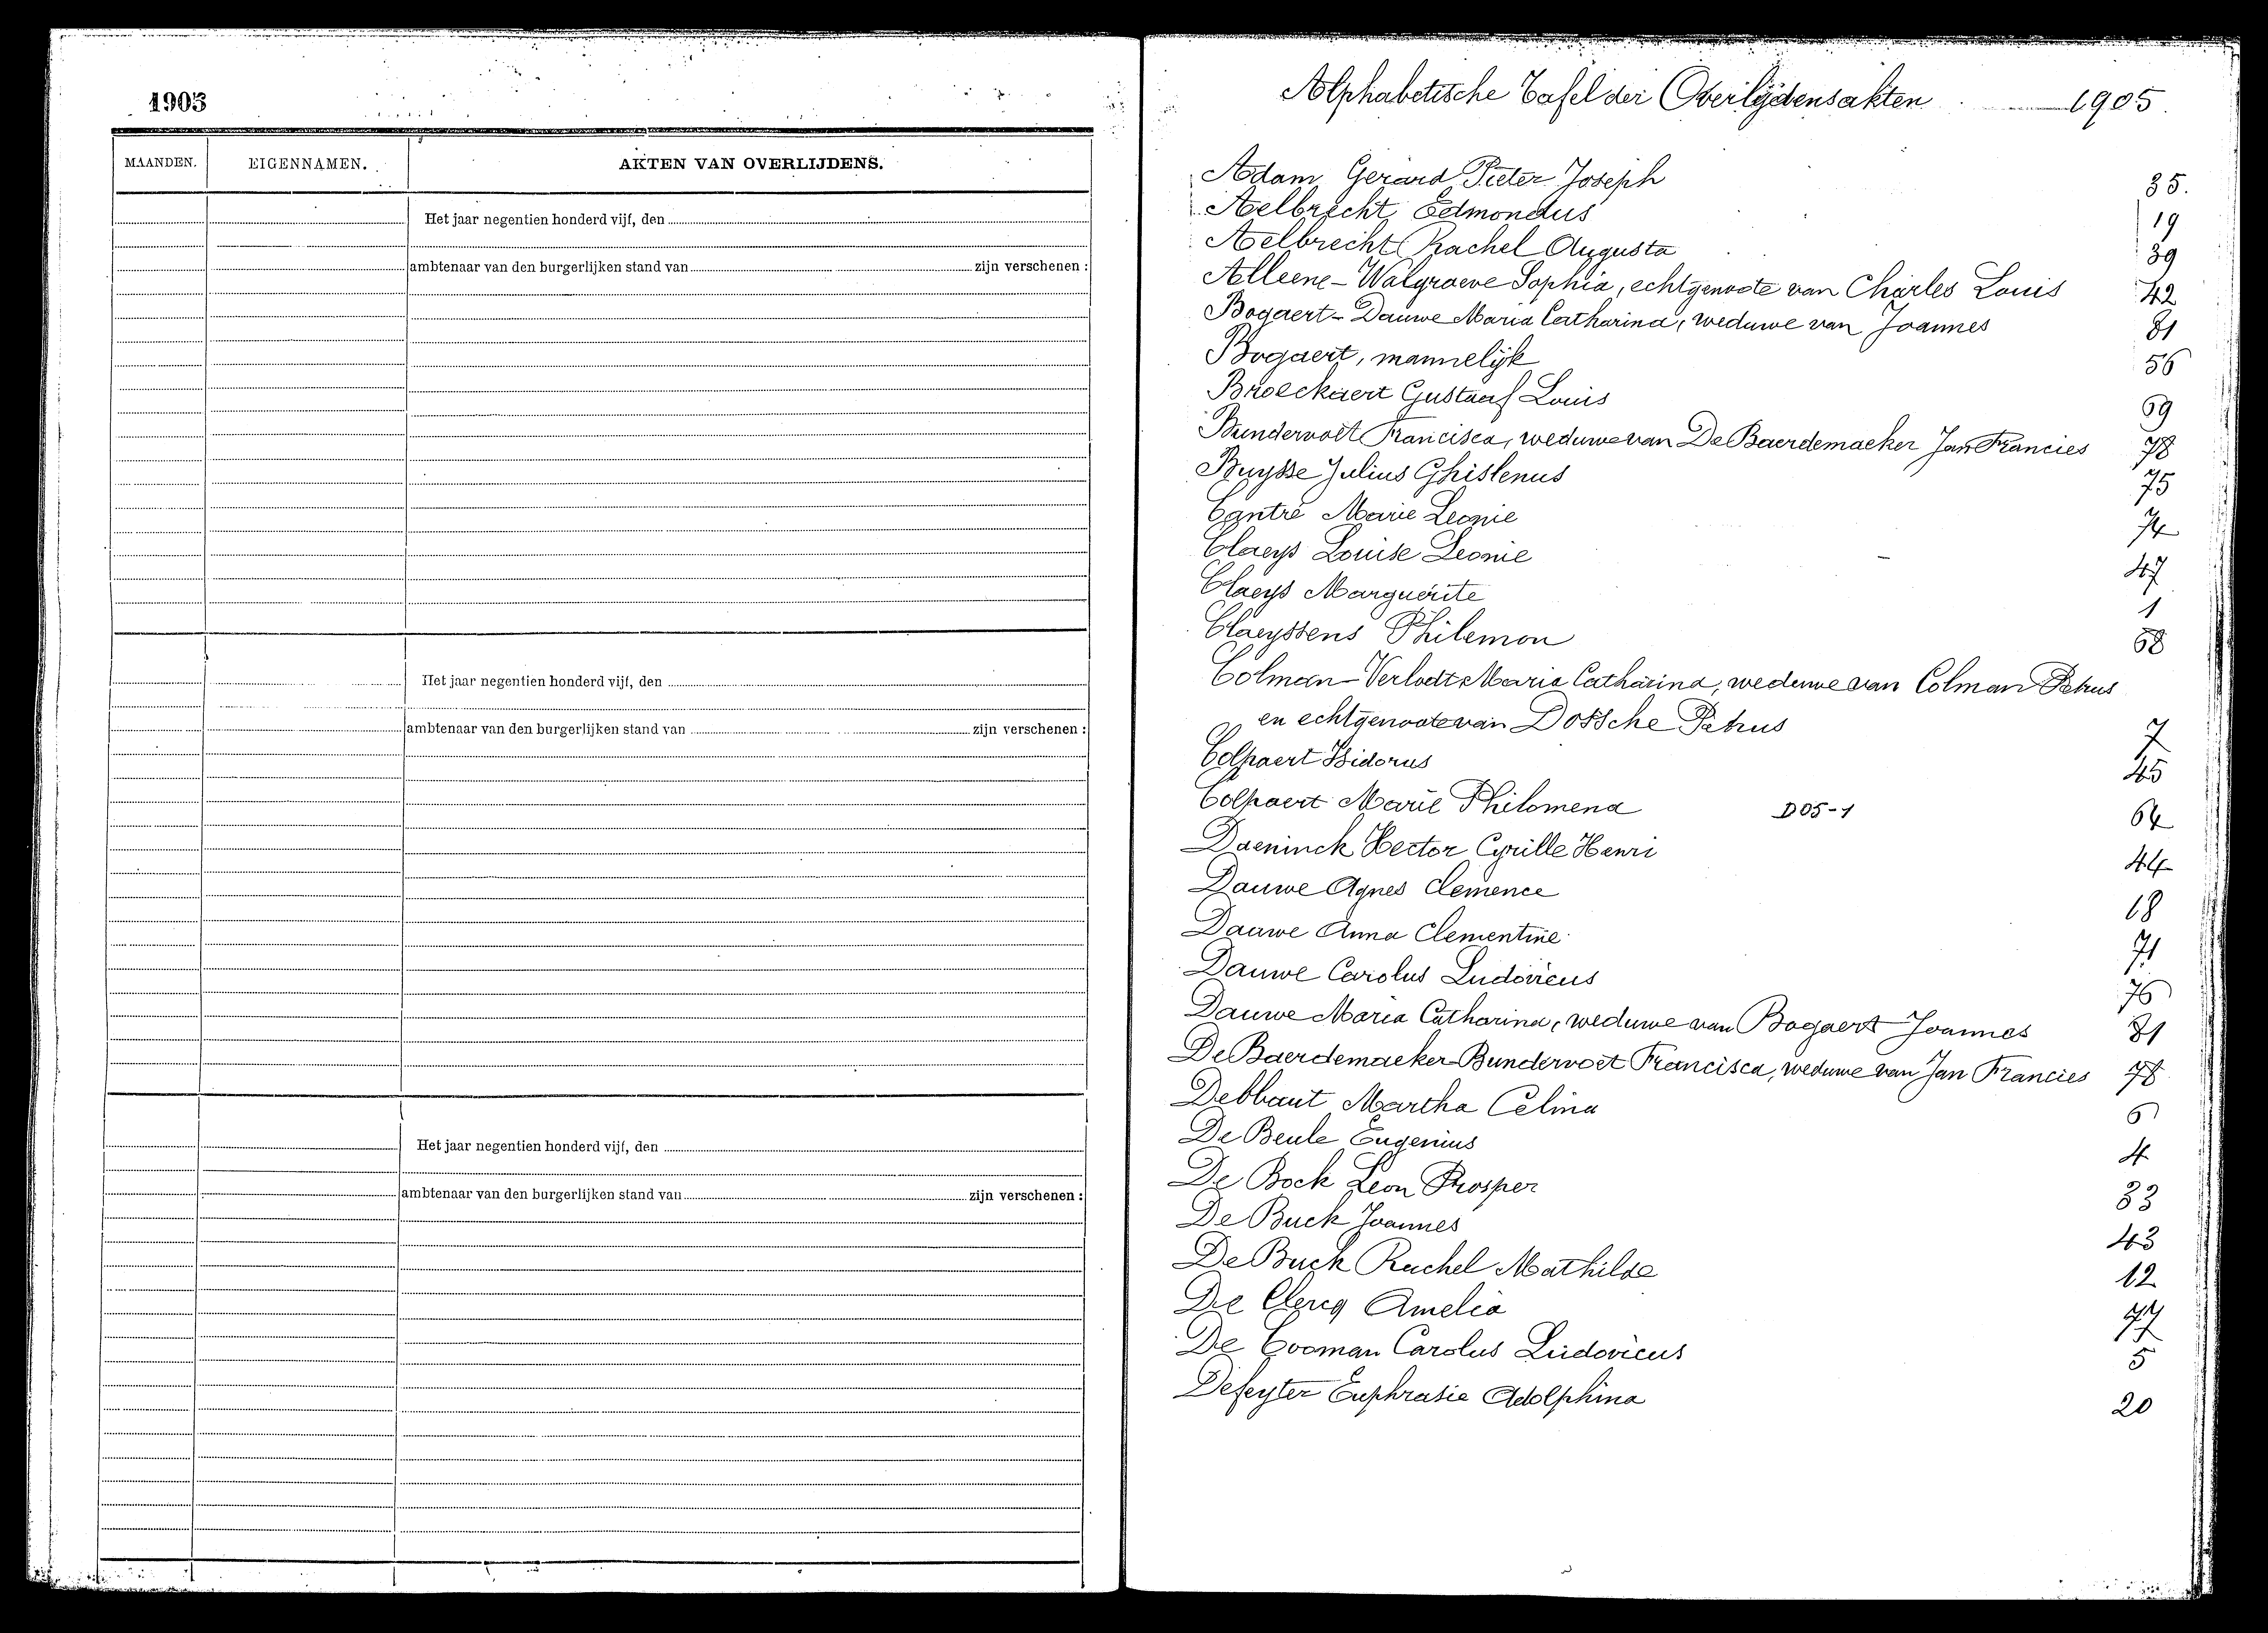 1905
MAANDEN. EIGENNAMEN. AKTEN VAN OVERLIJDENS.
Het jaar negentien honderd vijf, den
ambtenaar van den burgerlijken stand van zijn verschenen :
Het jaar negentien honderd vijf, den
ambtenaar van den burgerlijken stand van zijn verschenen :
Het jaar negentien honderd vijf, den
ambtenaar van den burgerlijken stand van zijn verschenen :
Alphabetische Tafel der Overlijdensakten 1905.
Adam Gerard Pieter Joseph 35.
Aelbrecht Edmondus 19
Aelbrecht Rachel Augusta 39
Alleene - Walgraeve Sophia, echtgenoote van Charles Louis 42
Bogaert - Dauwe Maria Catharina, weduwe van Joannes 81
Bogaert, mannelijk 56
Broeckaert Gustaaf Louis 69
Bundervoet Francisca, weduwe van De Baerdemaeker Jan Francies 78
Buysse Julius Ghislenus 75
Cantré Marie Leonie 74
Claeys Louise Leonie 47
Claeys Marguerite 1
Claeyssens Philemon 68
Colman - Verlodt Maria Catharina, weduwe van Colman Petrus
en echtgenoote van Dossche Petrus 7
Colpaert Isidorus 45
Colpaert Marie Philomena D05-1 64
Daeninck Hector Cyrille Henri 44
Dauwe Agnes Clemence 18
Dauwe Anna Clementine 71
Dauwe Carolus Ludovicus 76
Dauwe Maria Catharina, weduwe van Bogaert Joannes 81
De Baerdemaeker - Bundervoet Francisca, weduwe van Jan Francies 78
Debbaut Martha Celina 6
De Beule Eugenius 4
De Bock Leon Prosper 33
De Buck Joannes 43
De Buck Rachel Mathilde 12
De Clercq Amelia 77
De Cooman Carolus Ludovicus 5
Defeyter Euphrasie Adolphina 20